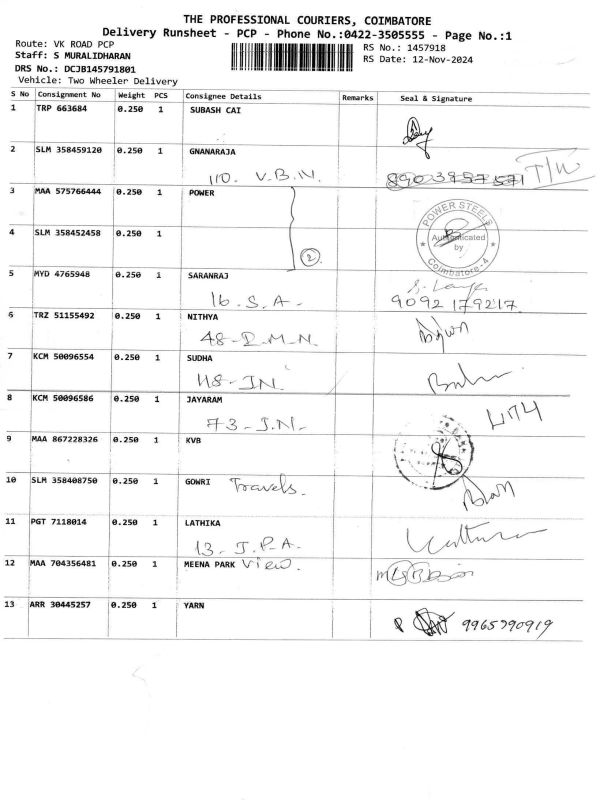 THE PROFESSIONAL COURIERS, COIMBATORE
Delivery Runsheet - PCP - Phone No.:0422-3505555 - Page No.:1
Route: VK ROAD PCP RS No.: 1457918
Staff: S MURALIDHARAN RS Date: 12-Nov-2024
DRS No.: DCJB145791801
Vehicle: Two Wheeler Delivery
S No Consignment No Weight PCS Consignee Details Remarks Seal & Signature
1 TRP 663684 0.250 1 SUBASH CAI
2 SLM 358459120 0.250 1 GNANARAJA
110. V.B.N. 8903957571 T/W
3 MAA 575766444 0.250 1 POWER
POWER STEELS
Authenticated
by
Coimbatore-4
4 SLM 358452458 0.250 1
2
5 MYD 4765948 0.250 1 SARANRAJ
16. S.A. 9092179217
6 TRZ 51155492 0.250 1 NITHYA
48-D.M.N.
7 KCM 50096554 0.250 1 SUDHA
118-JN.
8 KCM 50096586 0.250 1 JAYARAM
73-J.N-
9 MAA 867228326 0.250 1 KVB
10 SLM 358408750 0.250 1 GOWRI Travels.
11 PGT 7118014 0.250 1 LATHIKA
13-J.P.A.
12 MAA 704356481 0.250 1 MEENA PARK View.
13 ARR 30445257 0.250 1 YARN
9965390919